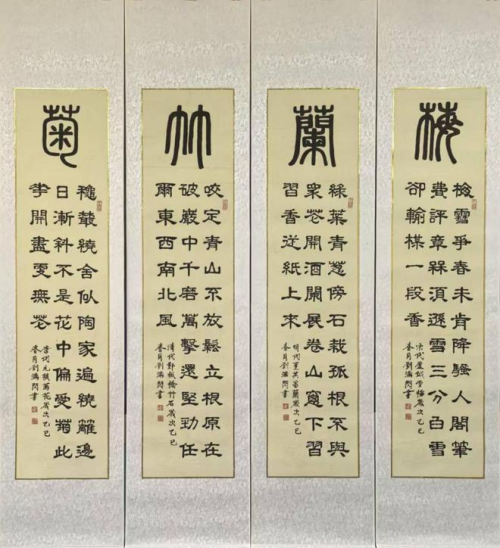 梅
梅雪爭春未肯降騷人閣筆
費評章梅須遜雪三分白雪
卻輸梅一段香
宋代盧梅坡雪梅歲次乙巳
春月劉滿書
蘭
綠葉青蔥傍石栽孤根不與
眾花開酒闌展卷山窗下習
習香從紙上來
明代歲次乙巳
春月劉滿書
竹
咬定青山不放鬆立根原在
破巖中千磨萬擊還堅勁任
爾東西南北風
清代鄭板橋竹石歲次乙巳
春月劉滿書
菊
穐叢繞舍似陶家遍繞籬邊
日漸斜不是花中偏愛菊此
花開盡更無花
唐代元稹菊花歲次乙巳
春月劉滿書